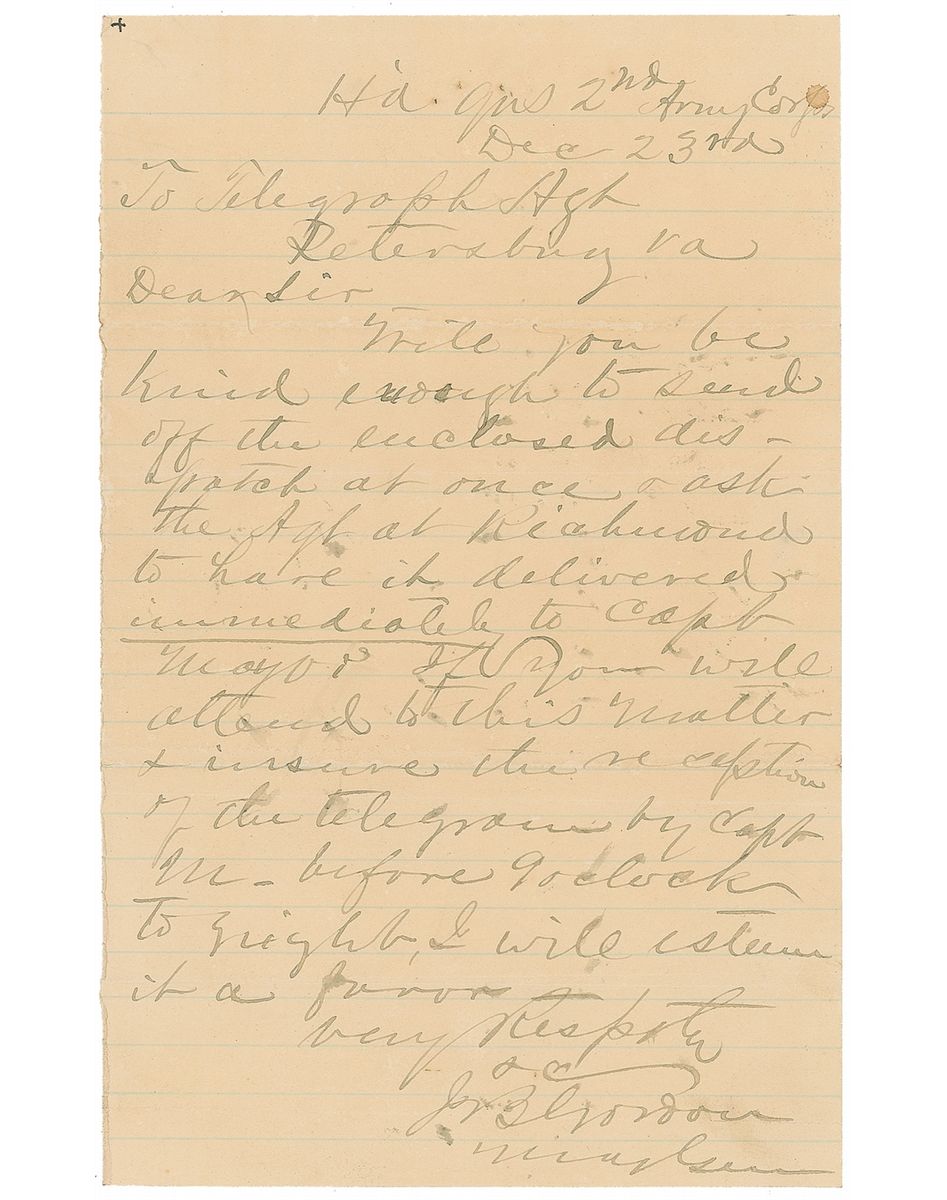 +
Hd qrs 2nd Army Corps
Dec 23rd
To Telegraph Agt
Petersburg Va
Dear Sir
Will you be
kind enough to send
off the enclosed dis-
patch at once & ask
the Agt at Richmond
to have it delivered
immediately to Capt
Mayo? If you will
attend to this matter
& insure the reception
of the telegram by Capt
M- before 9 oclock
to night, I will esteem
it a favor
Very Respctly
&c
J B Gordon
Maj Gen